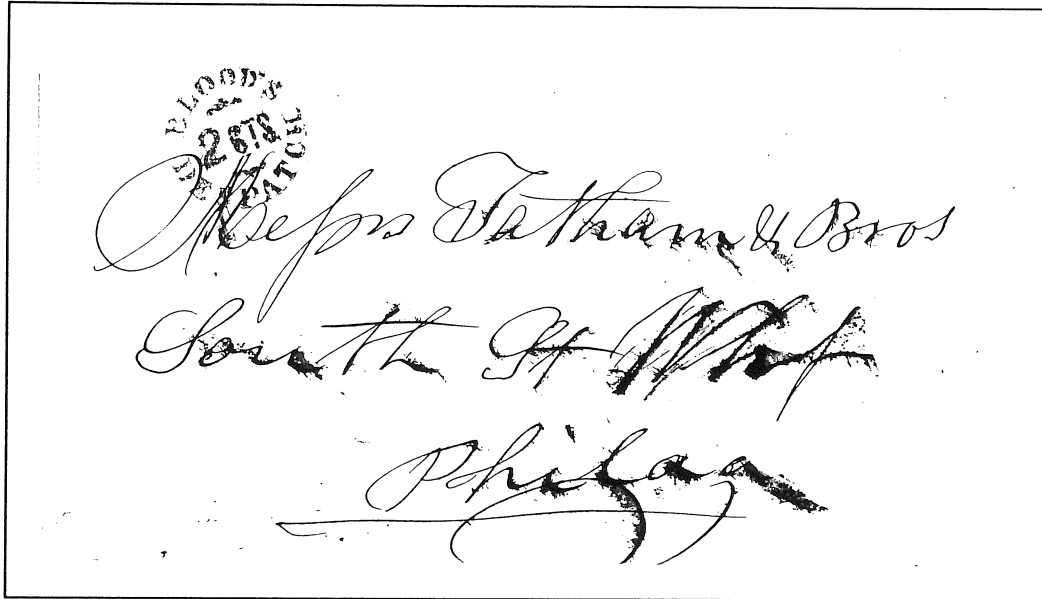 BLOOD'S
2 CTS
DESPATCH
Messrs Tatham & Bros
South St Whf
Philada